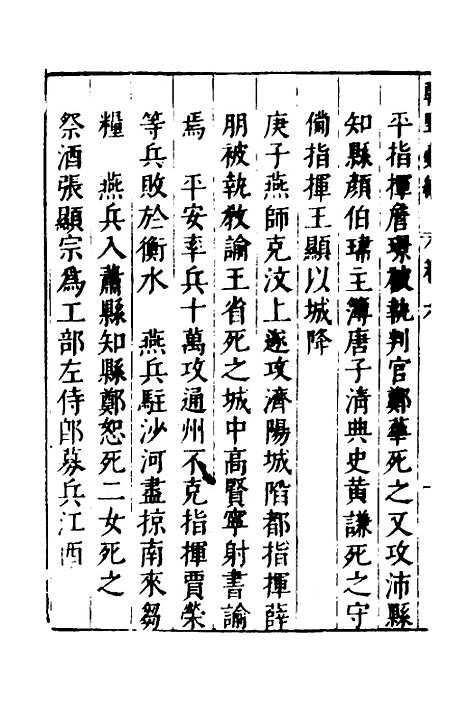 平指揮詹璟被執判官鄭華死之又攻沛縣
知縣顏伯瑋主簿唐子清典史黃謙死之守
備指揮王顯以城降
庚子燕師克汶上遂攻濟陽城陷都指揮薛
朋被執教諭王省死之城中高賢寧射書諭
焉　平安率兵十萬攻通州不克指揮賈榮
等兵敗於衡水　燕兵駐沙河盡掠南來芻
糧　燕兵入蕭縣知縣鄭恕死二女死之
祭酒張顯宗為工部左侍郎募兵江西